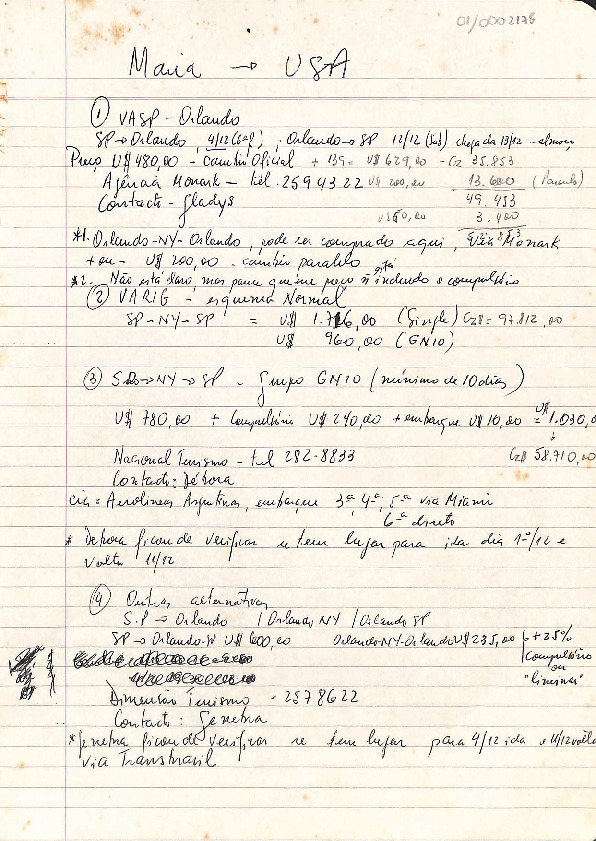 01/0002178
Maria → USA
① VASP - Orlando
SP → Orlando 4/12 (6ªf); Orlando → SP 12/12 (Sab) chegada 13/12 - almoço
Preço U$ 480,00 - Cambio Oficial + 139 = U$ 629,00 - Cz 35.853
Agência Monark - tel. 259 4322 U$ 200,00 13.600 (Paralelo)
Contacto - Gladys 49.453
U$ 50,00 3.400
*1. Orlando-NY-Orlando, pode ser comprado aqui, Monark
+ ou - U$ 200,00 - cambio paralelo
*2. Não está claro mas parece que no preço ñ está incluido o compulsório
② VARIG - esquema Normal
SP-NY-SP = U$ 1.716,00 (Single) Cz$ = 97.812,00
U$ 960,00 (GN10)
③ SP → NY → SP - Grupo GN10 (mínimo de 10 dias)
U$ 780,00 + Compulsório U$ 240,00 + embarque U$ 10,00 = U$ 1.030,0
Nacional Turismo - tel 282-8833 Cz$ 58.710,00
Contacto: Débora
Cia = Aerolineas Argentinas, embarque 3ª, 4ª, 5ª via Miami
6ª direto
* Debora ficou de verificar se tem lugar para ida dia 1º/12 e
volta 11/12
④ Outras alternativas
S.P → Orlando / Orlando NY / Orlando SP
SP → Orlando-SP U$ 600,00 Orlando-NY-Orlando U$ 235,00 + 25%
Compulsório
ou
"liminar"
Dimensão Turismo - 257 8622
Contacto:
* ficou de verificar se tem lugar para 4/12 ida e 11/12 volta
via Transbrasil